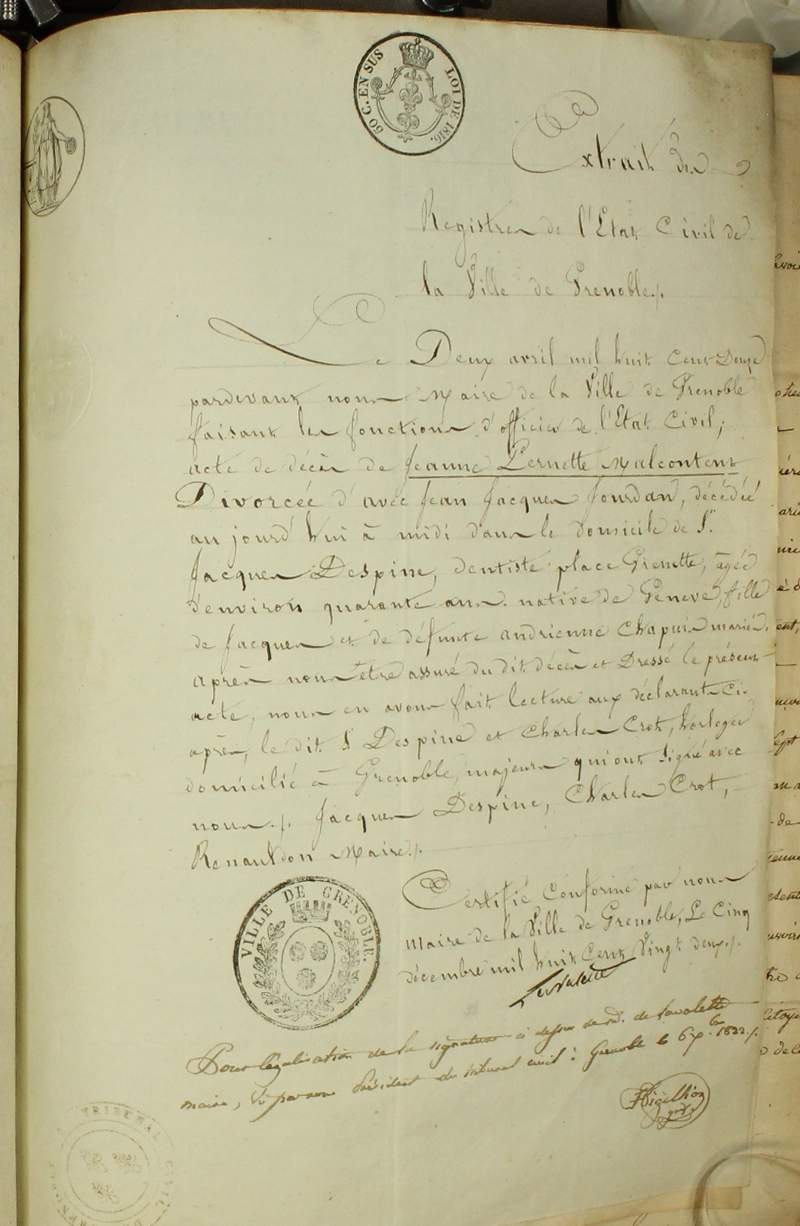 50 C. EN SUS
LOI DE 1816.
Extrait des
Registres de l'Etat Civil de
la Ville de Grenoble./.
Le Deux avril mil huit Cent Douze
pardevant nous Maire de la Ville de Grenoble
faisant les fonctions d'officier de l'Etat Civil,
acte de décès de Jeanne Pernette Malcontent
Divorcée d'avec Jean Jacques Jourdan, décédée
au jourd'hui à midi dans le domicile de Sr.
Jacques Despine, dentiste place Grenette, âgée
d'environ quarante ans native de Genève, fille
de Jacques et de défunte andrienne Chapuis mariés,
après nous être assuré du dit décès et Dressé le présent
acte, nous en avons fait lecture aux déclarants ci-
après, le dit S Despine et Charles Crot, horloger
domicilié à Grenoble, majeurs qui ont signé avec
nous ./. Jacques Despine, Charles Crot,
Renauldon Maire./.
VILLE DE GRENOBLE.
Certifié Conforme par nous
Maire de la Ville de Grenoble, Le Cinq
décembre mil huit Cent Vingt deux./.
Lavalette
Pour légalisation de la signature ci dessus de Mr. de Lavalette
maire, par nous Président du tribunal civil. Grenoble le 6 Xbre 1822./.
TRIBUNAL CIVIL